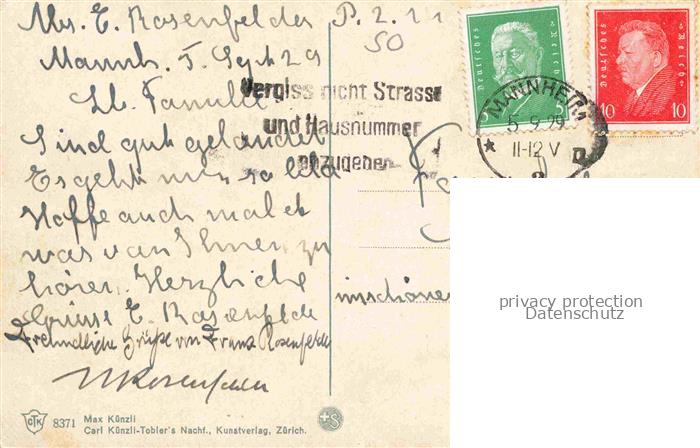 Mrs. E. Rosenfelder P. 2. 11
50
Mannh. 5. Sept 29
Lb. Familie
Sind gut gelandet
Es geht mir so
Hoffe auch mal et
was von Ihnen zu
hören. Herzliche
Grüsse E. Rosenfelde
Freundliche Grüße von Franz Rosenfelder
Rosenfelder
Vergiss nicht Strasse
und Hausnummer
anzugeben
Deutsches Reich
5 5
Deutsches Reich
10 10
MANNHEIM
5.9.29
11-12 V
* 2 D
privacy protection
Datenschutz
CTK 8371 Max Künzli
Carl Künzli-Tobler's Nachf., Kunstverlag, Zürich.
+S